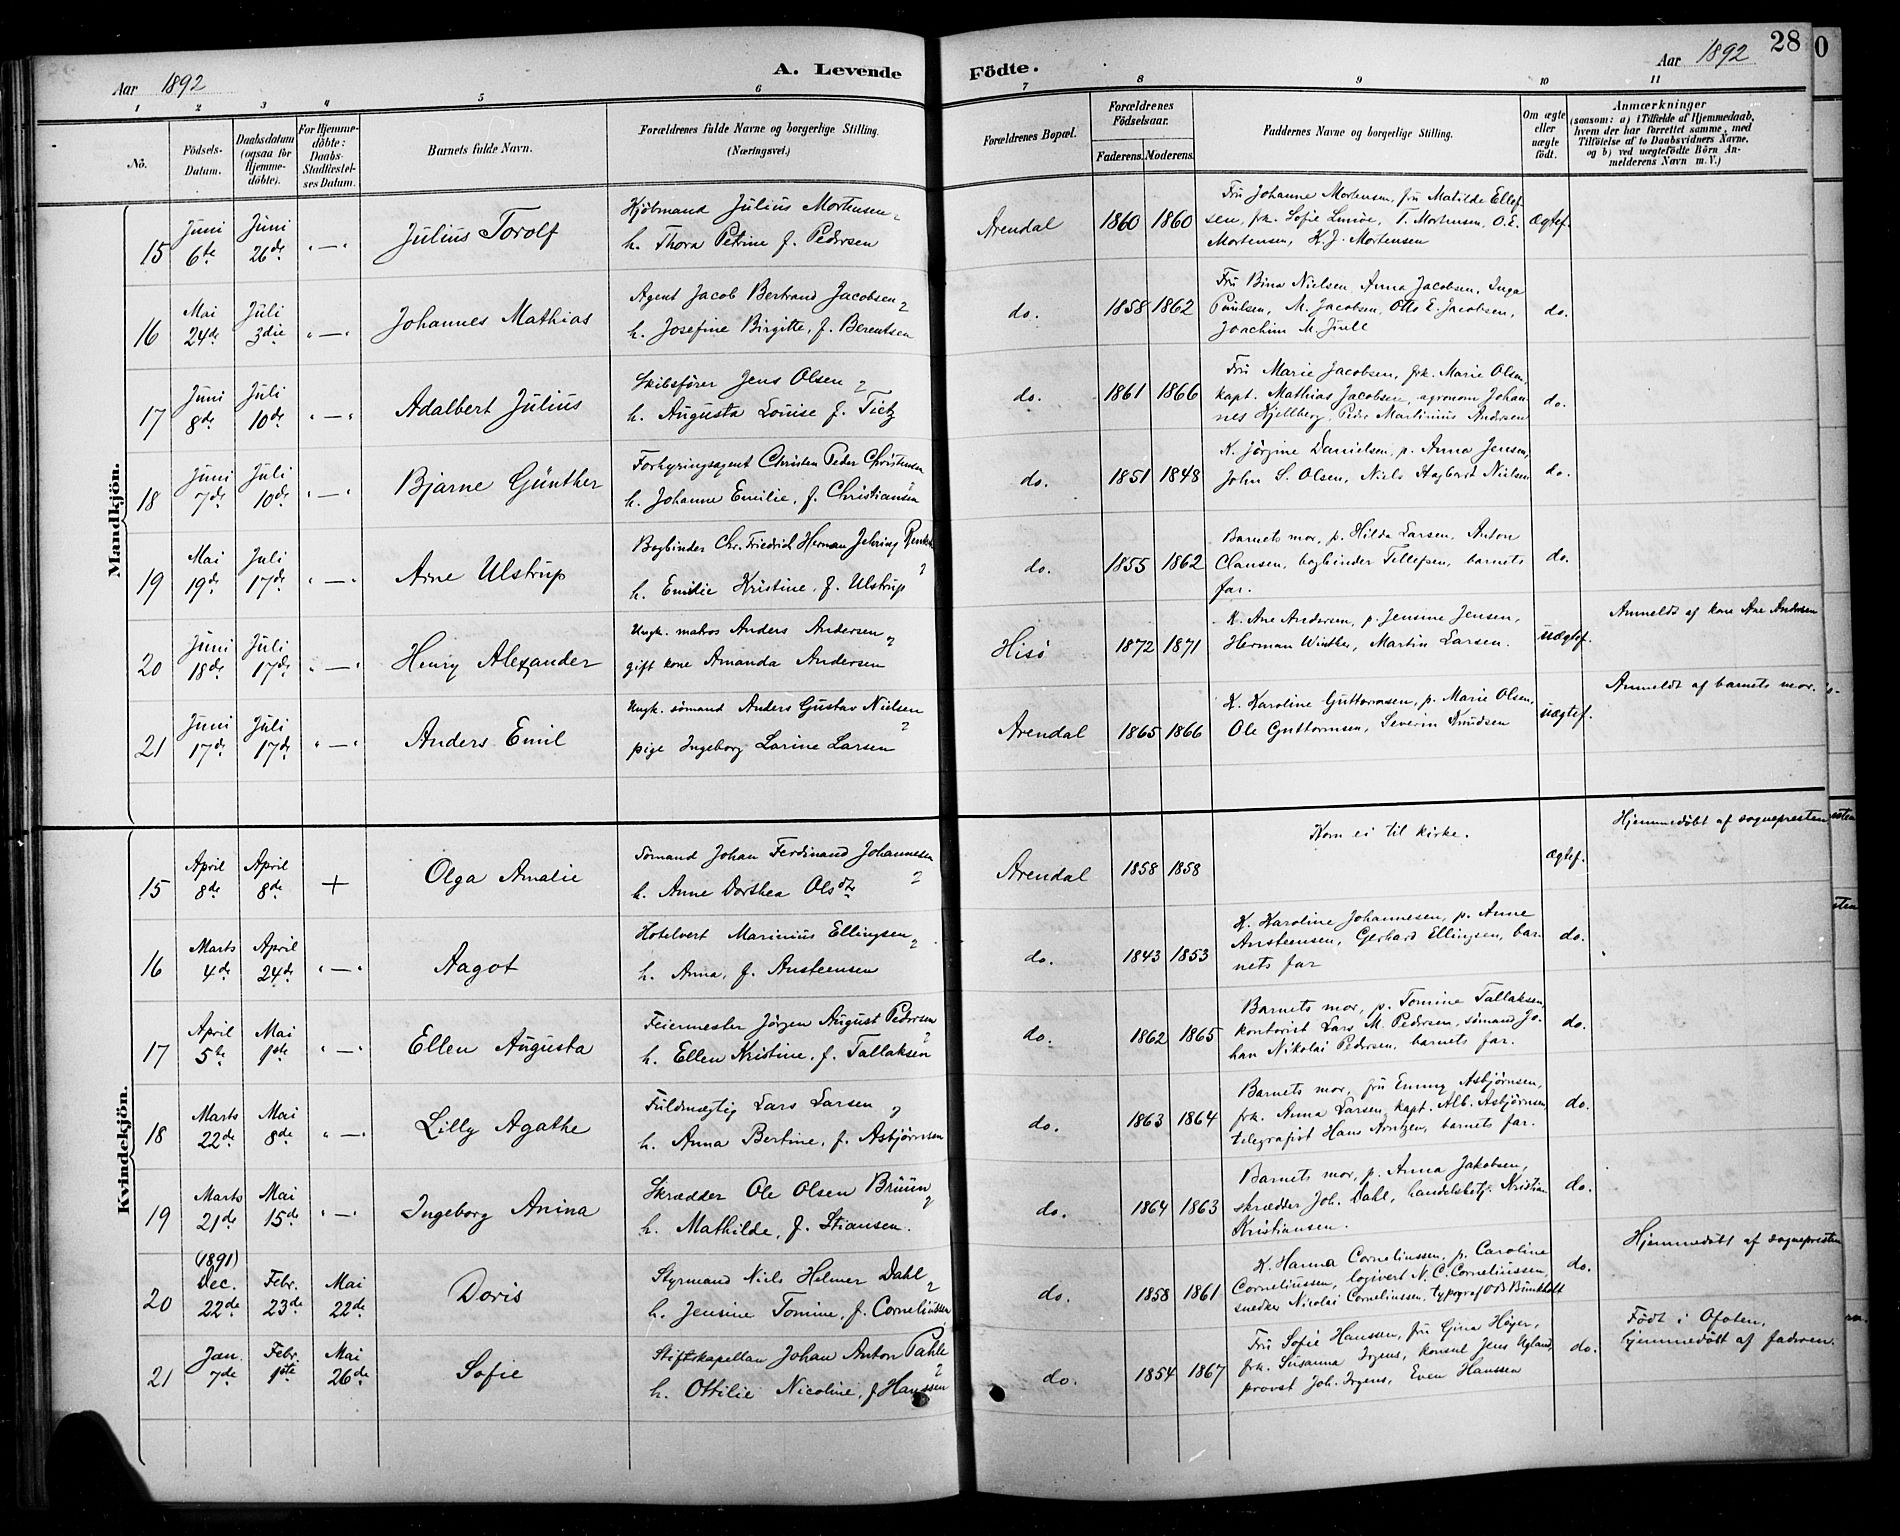 Aar 1892
A. Levende
Födte.
Aar 1892
28
0
1 2 3 4 5 6 7 8 9 10 11
No.
Födsels-
Datum.
Daabsdatum
(ogsaa for
Hjemme-
döbte).
For Hjemme-
döbte:
Daabs-
Stadfæstel-
ses Datum.
Barnets fulde Navn.
Forældrenes fulde Navne og borgerlige Stilling.
(Næringsvei.)
Forældrenes Bopæl.
Forældrenes
Födselsaar.
Faderens. Moderens.
Faddernes Navne og borgerlige Stilling.
Om ægte
eller
uægte
födt.
Anmærkninger
(saasom: a) i Tilfælde af Hjemmedaab,
hvem der har forrettet samme, med
Tilföielse af to Daabsvidners Navne,
og b) ved uægtefödte Börn An-
melderens Navn m. V.)
Mandkjön.
15 Juni 6te Juni 26de "—" Julius Torolf
Kjöbmand Julius Mortensen
h. Thora Petrine f. Pedersen
Arendal 1860 1860
Fru Johanne Mortensen, fru Matilde Ellef-
sen, frk. Sofie T. Mortensen, O. E.
Mortensen, K. J. Mortensen
Ægtef.
16 Mai 24de Juli 3die "—" Johannes Mathias
Agent Jacob Bertrand Jacobsen
h. Josefine Birgitte, f. Berentsen
do. 1858 1862
Fru Bina Nielsen, Anna Jacobsen, Inga
Paulsen, M. Jacobsen, Otto E. Jacobsen,
Joachim M. Juell
do.
17 Juni 8de Juli 10de "—" Adalbert Julius
Skibsförer Jens Olsen
h. Augusta Louise f. Tietz
do. 1861 1866
Fru Marie Jacobsen, frk. Marie Olsen,
kapt. Mathias Jacobsen, agronom Johan-
nes Kjellberg, Peder Martinius Andersen
do.
18 Juni 7de Juli 10de "—" Bjarne Günther
Forhyringsagent Christen Peder Christensen
h. Johanne Emilie, f. Christiansen
do. 1851 1848
K. Jörgine Danielsen, p. Anna Jensen,
John S. Olsen, Niels Hagbart Nielsen
do.
19 Mai 19de Juli 17de "—" Arne Ulstrup
Bogbinder Chr. Friedrich Herman Jehring
h. Emilie Kristine, f. Ulstrup
do. 1855 1862
Barnets mor, p. Hilda Larsen, Anton
Clausen, bogbinder Tellefsen, barnets
far.
do.
20 Juni 18de Juli 17de "—" Henry Alexander
Ungk. matros Anders Andersen
gift kone Amanda Andersen
Hisö 1872 1871
K. Ane Andersen, p. Jensine Jensen,
Herman Winther, Martin Larsen.
uægtef.
Anmeldt af kone Ane Andersen
21 Juni 17de Juli 17de "—" Anders Emil
Ungk. sömand Anders Gustav Nielsen
pige Ingeborg Larine Larsen
Arendal 1865 1866
K. Karoline Guttormsen, p. Marie Olsen,
Ole Guttormsen, Severin Knudsen
uægtef.
Anmeldt af barnets mor.
Kvindekjön.
15 April 8de April 8de + Olga Amalie
Sömand Johan Ferdinand Johannesen
h. Anne Dorthea Olsdtr
Arendal 1858 1858
Kom ei til kirke.
ægtef.
Hjemmedöbt af sognepresten
16 Marts 4de April 24de "—" Aagot
Hotelvert Marinius Ellingsen
h. Anna, f. Ansteensen
do. 1843 1853
K. Karoline Johannesen, p. Anne
Ansteensen, Gerhard Ellingsen, bar-
nets far
do.
17 April 5te Mai 1ste "—" Ellen Augusta
Feiermester Jörgen August Pedersen
h. Ellen Kristine, f. Tallaksen
do. 1862 1865
Barnets mor, p. Tomine Tallaksen,
kontorist Lars M. Pedersen, sömand Jo-
han Nikolai Pedersen, barnets far.
do.
18 Marts 22de Mai 8de "—" Lilly Agathe
Fuldmægtig Lars Larsen
h. Anna Bertine, f. Asbjörnsen
do. 1863 1864
Barnets mor, fru Emmy Asbjörnsen,
frk. Anna Larsen, kapt. Alb. Asbjörnsen,
telegrafist Hans Arntzen, barnets far.
do.
19 Marts 21de Mai 15de "—" Ingeborg Anina
Skrædder Ole Olsen Bruun
h. Mathilde, f. Stiansen.
do. 1864 1863
Barnets mor, p. Anna Jakobsen,
skrædder Joh. Dahl, handelsbetj. Kristian
Kristiansen.
do.
20 (1891) Dec. 22de Febr. 23de Mai 22de Doris
Styrmand Niels Helmer Dahl
h. Jensine Tomine, f. Corneliussen
do. 1858 1861
K. Hanna Corneliussen, p. Caroline
Corneliussen, logivert N. C. Corneliussen,
snedker Nicolai Corneliussen, typograf O. B. Bunkholt
do.
Hjemmedöbt af sognepresten
21 Jan. 7de Febr. 1ste Mai 26de Sofie
Stiftskapellan Johan Anton Pahle
h. Ottilie Nicoline, f Hanssen
do. 1854 1867
Fru Sofie Hanssen, fru Gina Höyer,
frk. Susanna Irgens, konsul Jens Ugland,
provst Joh. Irgens, Even Hanssen
do.
Födt i Ofoten,
hjemmedöbt af faderen.